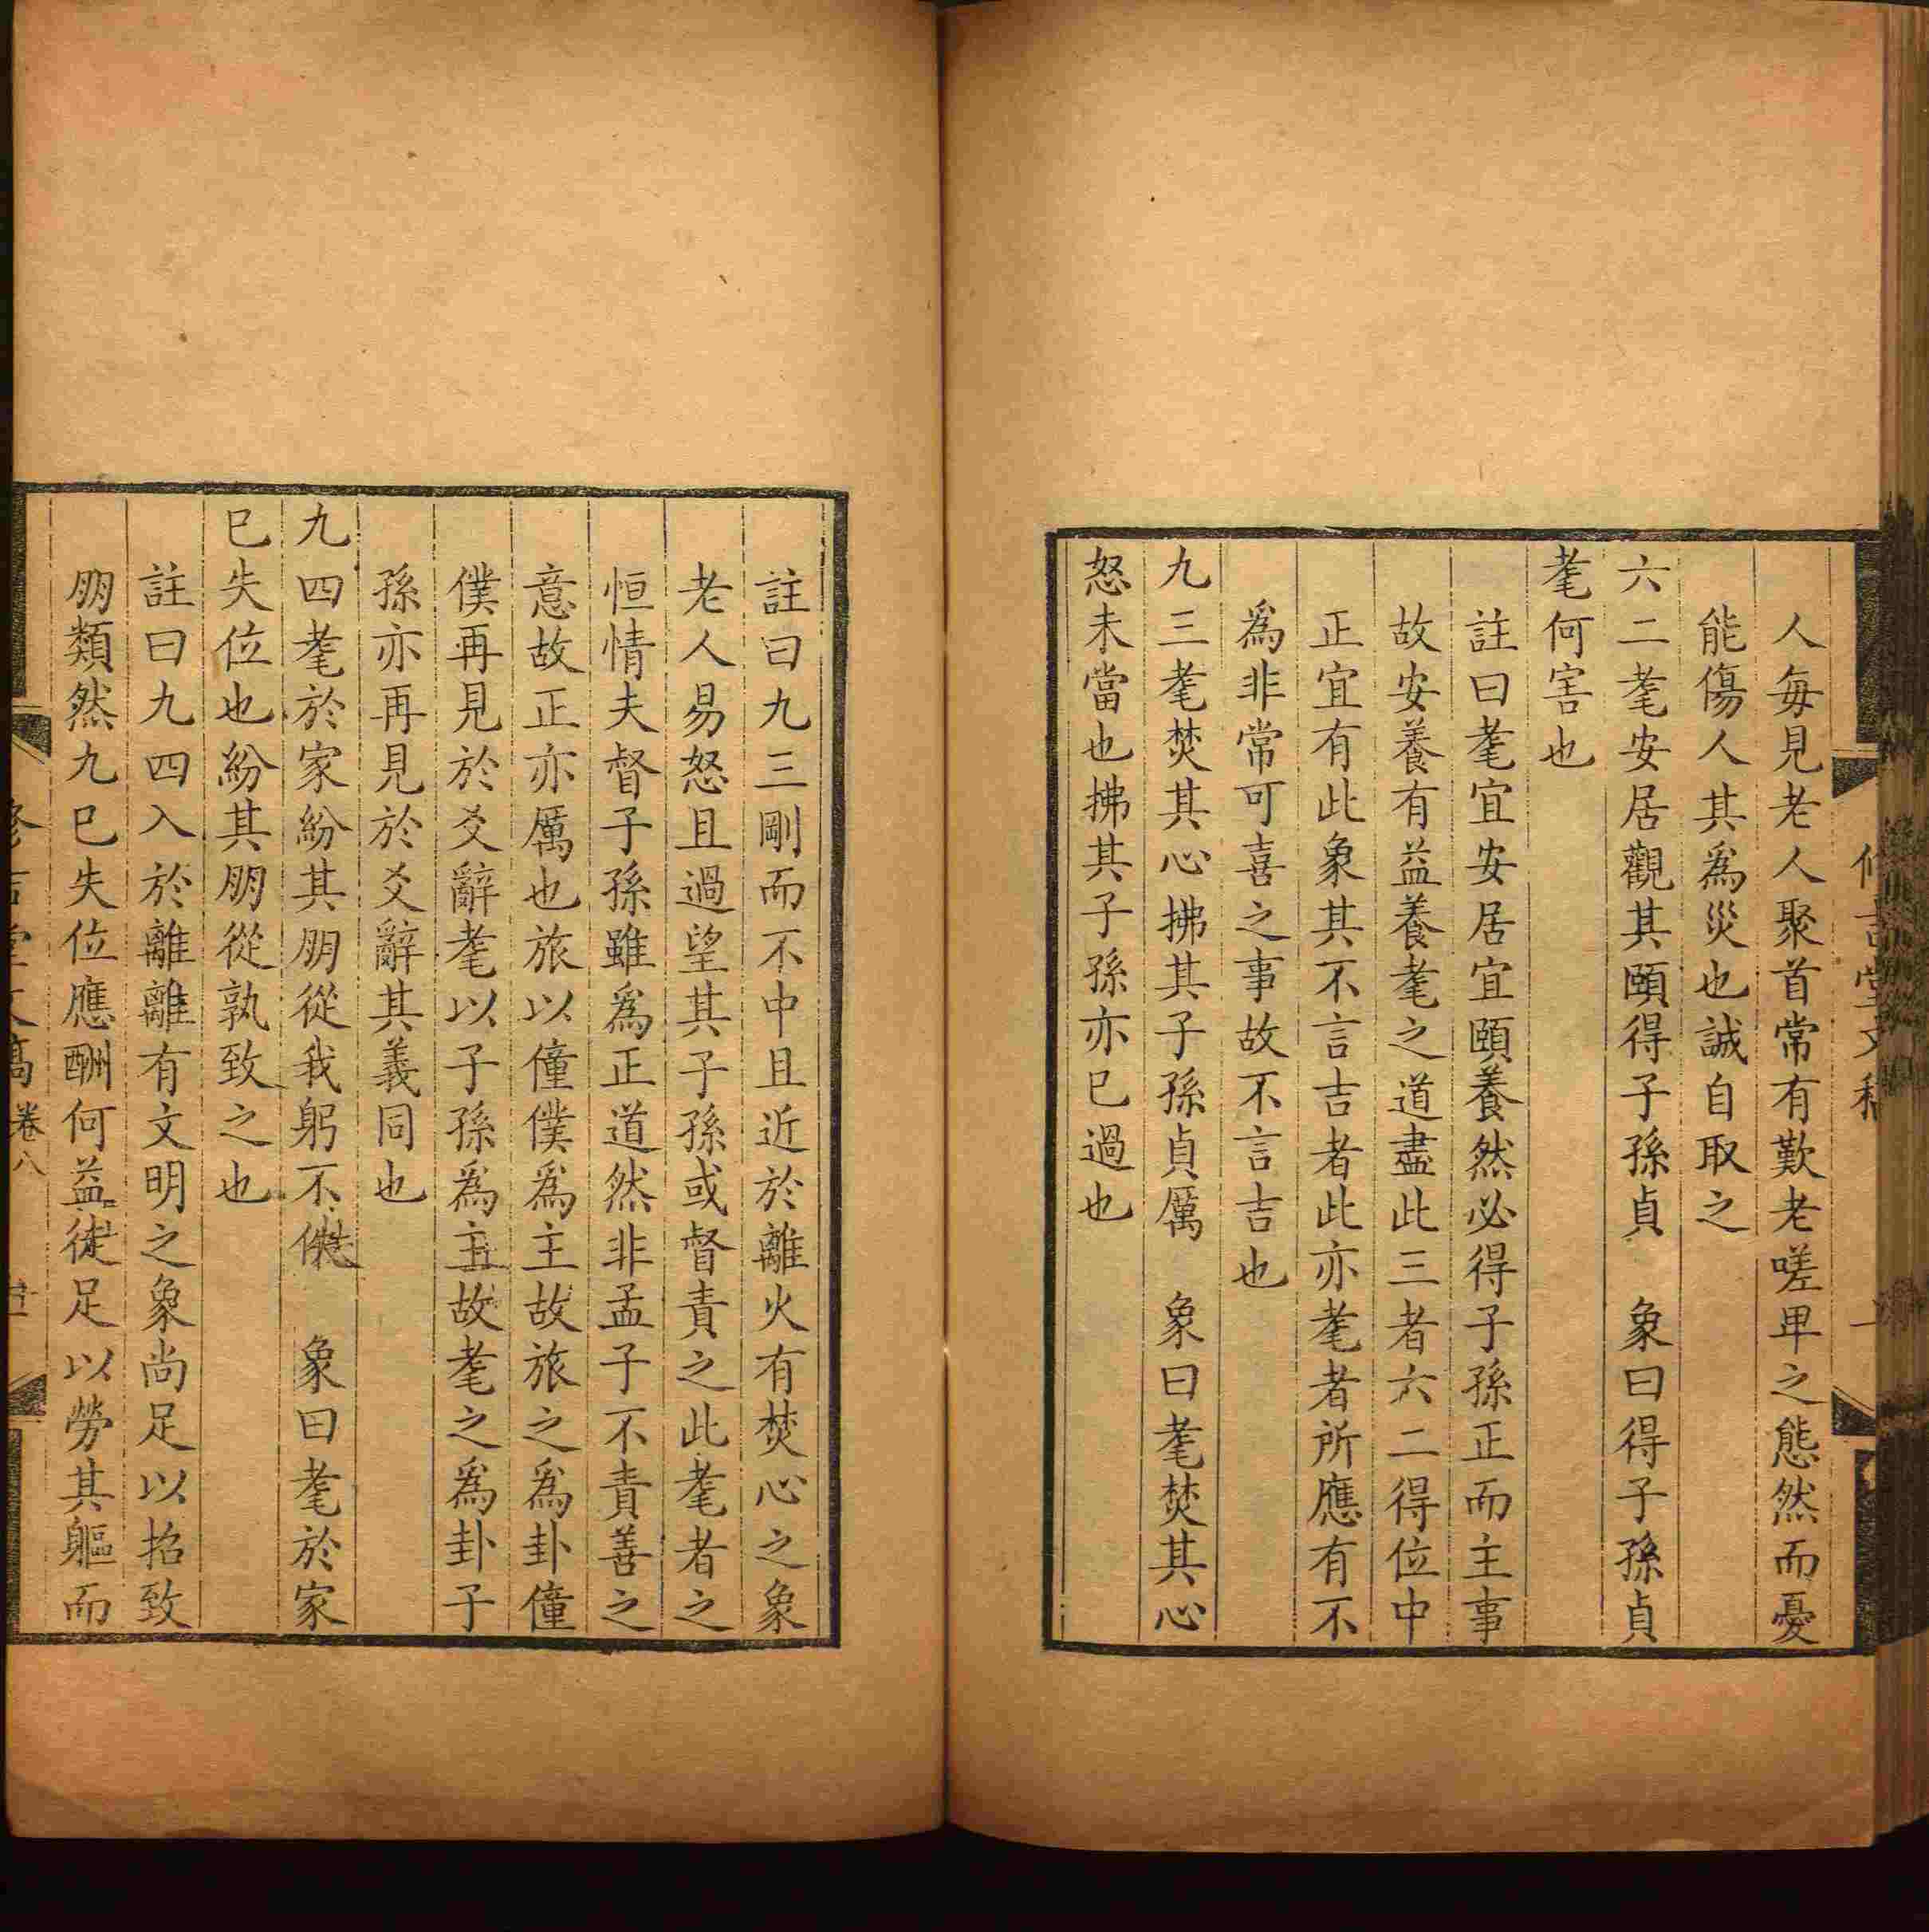 人每見老人聚首常有歎老嗟卑之態然而憂
能傷人其爲災也誠自取之
六二耄安居觀其頤得子孫貞　象曰得子孫貞
耄何害也
註曰耄宜安居宜頤養然必得子孫正而主事
故安養有益養耄之道盡此三者六二得位中
正宜有此象其不言吉者此亦耄者所應有不
爲非常可喜之事故不言吉也
九三耄焚其心拂其子孫貞厲　象曰耄焚其心
怒未當也拂其子孫亦已過也
註曰九三剛而不中且近於離火有焚心之象
老人易怒且過望其子孫或督責之此耄者之
恒情夫督子孫雖爲正道然非孟子不責善之
意故正亦厲也旅以僮僕爲主故旅之爲卦僮
僕再見於爻辭耄以子孫爲主故耄之爲卦子
孫亦再見於爻辭其義同也
九四耄於家紛其朋從我躬不　象曰耄於家
已失位也紛其朋從孰致之也
註曰九四入於離離有文明之象尚足以招致
朋類然九已失位應酬何益徒足以勞其軀而
卷八